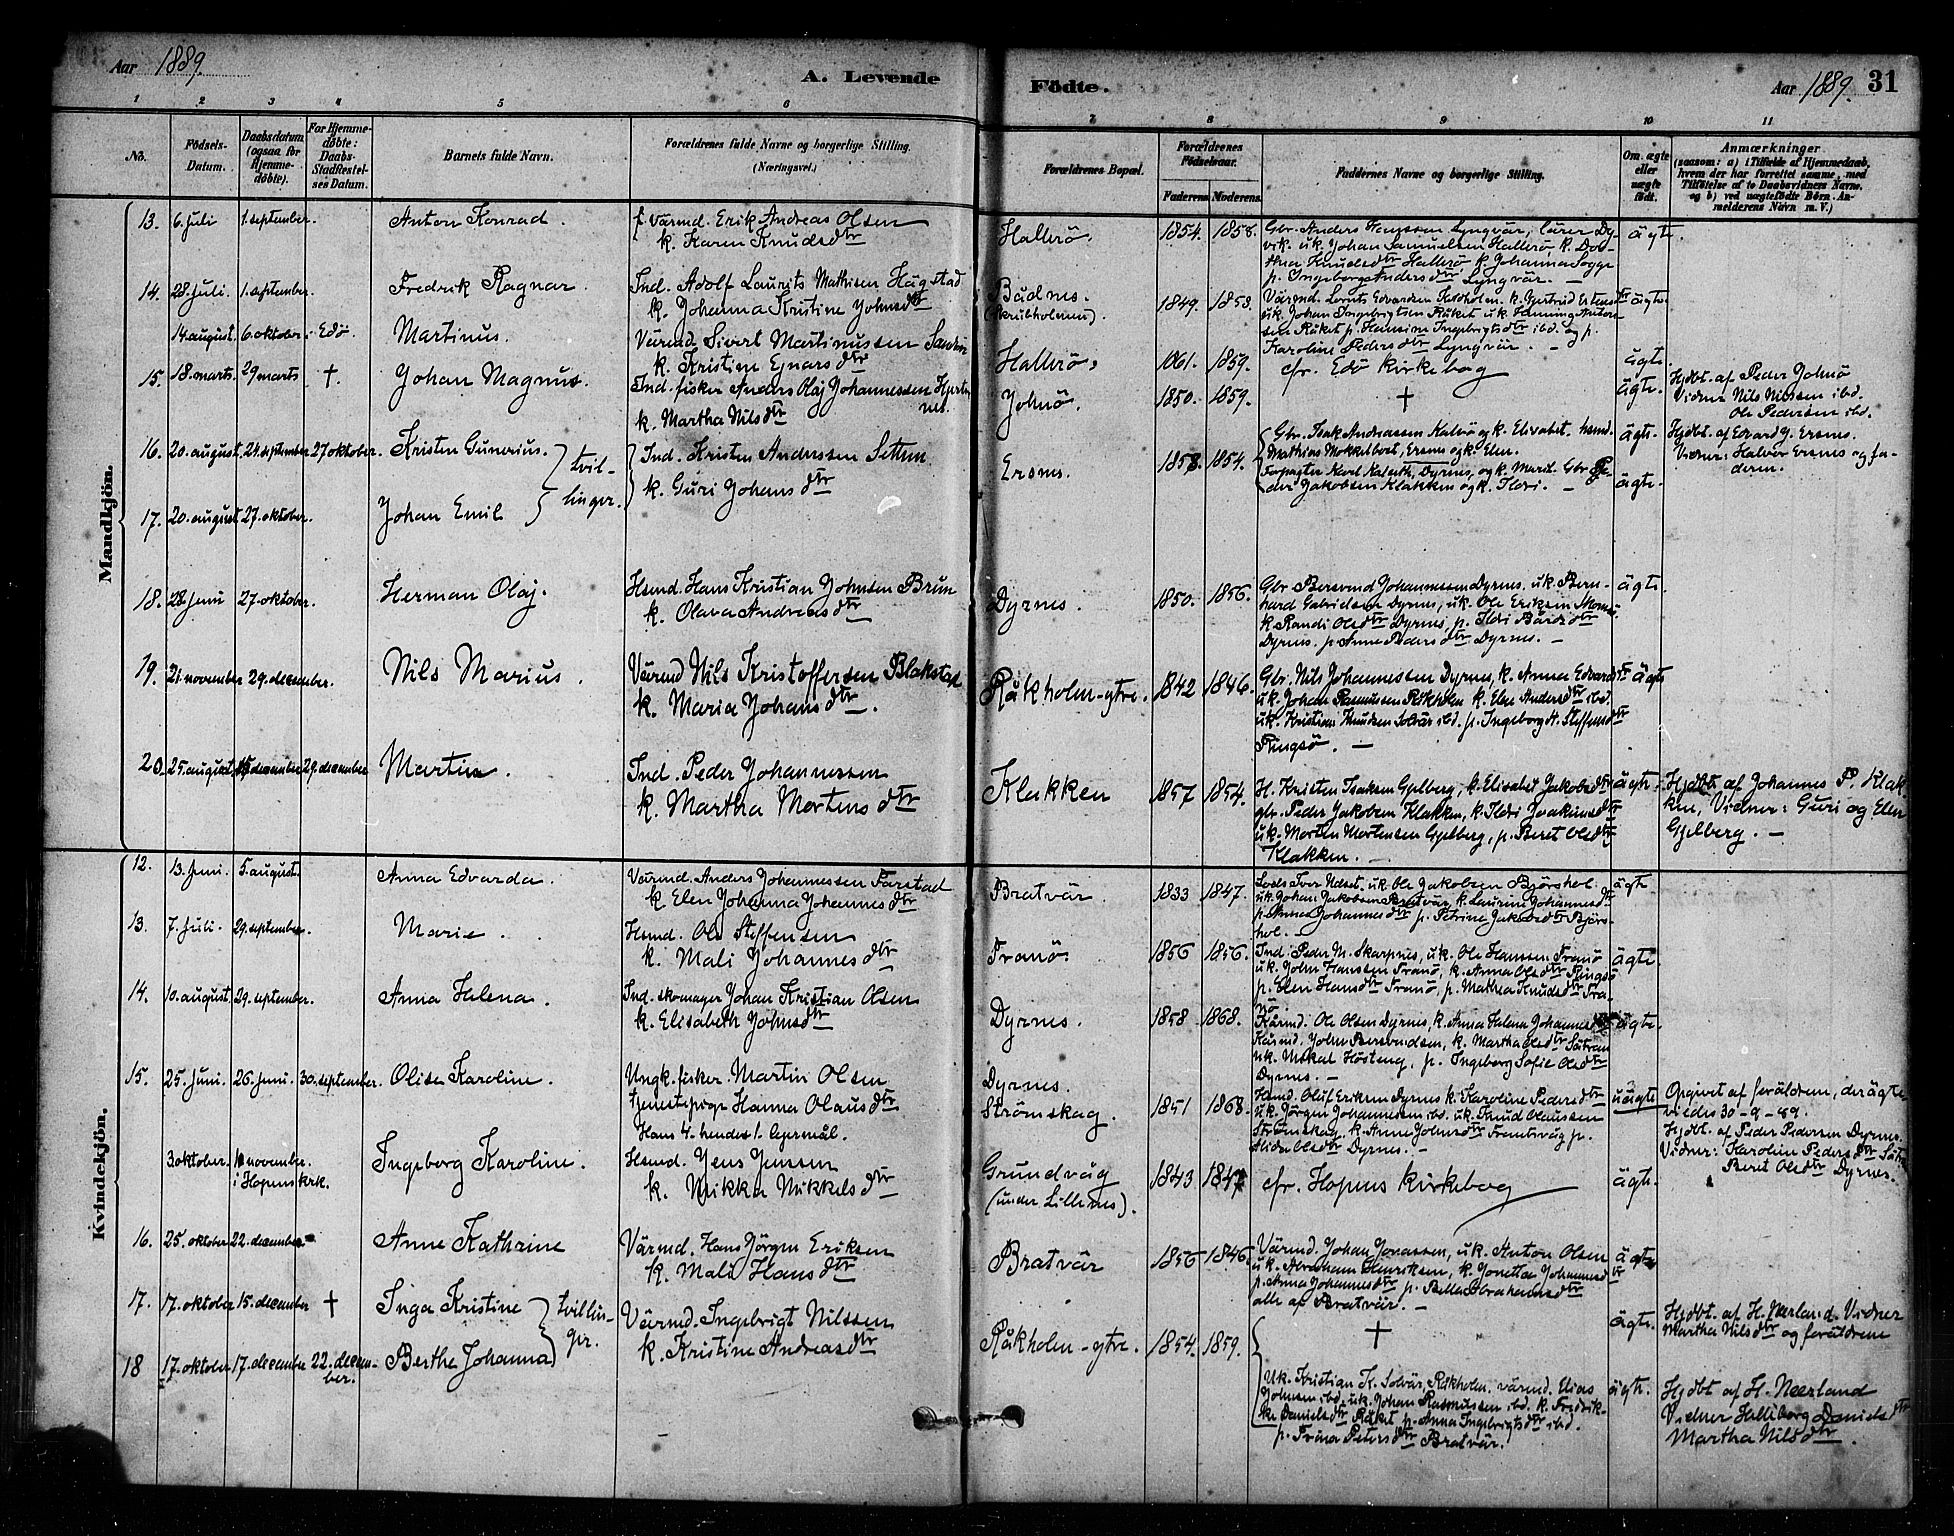 Aar 1889.
A. Levende
Fødte.
Aar 1889.
31
1 2 3 4 5 6 7 8 9 10 11
No.
Fødsels-
Datum.
Daabsdatum
(ogsaa for
Hjemme-
døbte).
For Hjemme-
døbte:
Daabs-
Stadfæstel-
ses Datum.
Barnets fulde Navn.
Forældrenes fulde Navne og borgerlige Stilling.
(Næringsvei.)
Forældrenes Bopæl.
Forældrenes
Fødselsaar.
Faderens Moderens
Faddernes Navne og borgerlige Stilling.
Om ægte
eller
uægte
født.
Anmærkninger
(saasom: a) i Tilfælde af Hjemmedaab,
hvem der har forrettet samme, med
Tilføielse af to Daabsvidners Navne.
og b) ved uægtefødte Børn An-
melderens Navn m. V.)
Mandkjøn.
13. 6. juli 1. september. Anton Konrad. Värmd. Erik Andreas Olsen
k. Karen Knudsdtr
Hallerö. 1854. 1858.
Gbr. Anders Hanssen Lyngvär, lärer Dy-
vik. uk. Johan Samuelsen Hallerö k. Doro-
thea Knudsdtr Hallerö k. Johanna Sogge
p. Ingeborg Andersdtr Lyngvär. —
ägte.
14. 28. juli. 1. september. Fredrik Ragnar. Ind. Adolf Laurits Mathisen Hägstad
k. Johanna Kristine Johnsdtr
Bådnes. 1849. 1853.
Värmd. Edvardsen k. Gertrud
uk. Johan Ingebrigtsen Råket uk. Henning Anton-
sen Råket p. Hansine Ingebrigtsdtr ibd. og p.
Karoline Pedersdtr Lyngvär. —
ägte.
14. august. 6. oktober. Edö. Martinus. Värmd Sivert Martinussen
k. Kristine Ejnarsdtr
Hallerö. 1861. 1859. cfr. Edö Kirkebog
ägte
15. 18. marts. 29 marts †. Johan Magnus. Ind. fisker Anders Olaj Johannessen
k. Martha Nilsdtr
Jolmö. 1850. 1859. †
ägte.
Hjdbt. af Peder Jolmö
Vidner Nils Nilssen ibd.
Ole Pedersen ibd.
16. 20. august. 24. september 27 oktober. Kristen Gunerius. tvil-
linger. Ind. Kristen Anderssen Settem
k. Guri Johansdtr
Ersnes. 1858. 1854.
Gbr. Isak Andreassen Kalvö og k. Elisabet. hsmd.
Mathias Mokkelbost, Ersnes og k. Elen.
Forpagter Karl Kalseth, Dyrnes, og k. Marit. Gbr. Pe-
der Jakobsen Klakken og k. Ildri. —
ägte.
Hjdbt. af Edvard J. Ersnes.
Vidner: Halvor Ersnes og fa-
deren.
17. 20. august 27. oktober. Johan Emil
ägte.
18. 28. juni 27. oktober. Herman Olaj. Hsmd. Hans Kristian Johnsen Brun
k. Olava Andreasdtr
Dyrnes. 1850. 1856.
Gbr. Bersvend Johannessen Dyrnes. uk. Bern-
hard Gabrielsen Dyrnes, uk. Ole Eriksen
k. Randi Olsdtr Dyrnes, p. Ildri Bårdsdtr
Dyrnes. p. Anne Pedersdtr Dyrnes. —
ägte.
19. 21. november 29. december. Nils Marius. Värmd Nils Kristoffersen Blakstad
k. Maria Johansdtr.
Råkholm-ytre. 1842 1846.
Gbr. Nils Johannessen Dyrnes, k. Anna Edvardsdtr
uk. Johan Rasmussen Råkholm k. Elen Andersdtr ibd.
uk. Kristian Knudsen Solvär ibd. p. Ingeborg A. Steffensdtr
Ringsö. —
ägte
20. 25. august 15. december 29. december Martin. Ind. Peder Johannessen
k. Martha Mortensdtr
Klakken 1857 1854.
H. Kristen Isaksen Gjelberg, k. Elisabet Jakobsdtr
gbr. Peder Jakobsen Klakken, k. Ildri Joakimsdtr
uk. Morten Mortensen Gjelberg, p. Beret Olsdtr
Klakken. —
ägte.
Hjdbt af Johannes P. Klak-
ken, Vidner: Guri og Elen
Gjelberg. —
Kvindekjön.
12. 13. juni. 5. august. Anna Edvarda. Värmd. Anders Johannessen Farstad
k. Elen Johanna Johannesdtr
Bratvär. 1833 1847.
Lods Iver Udset. uk. Ole Jakobsen Bjørshol.
uk. Johan Jakobsen Bratvär, k. Laurine Johannesdtr
p. Anna Johannesdtr p. Petrine Jakobsdtr Bjørs-
hol. —
ägte
13. 7. juli. 29. september. Marie. Hsmd. Ole Steffensen
k. Mali Johannesdtr
Franö. 1856 1856.
Ind. Peder M. Skarpnes, uk. Ole Hanssen Franö
uk. John Hanssen Franö, k. Anna Olsdtr Ringsö
p. Elen Hansdtr Franö, p. Mathea Knudsdtr Fra-
nö.
ägte.
14. 10. august. 29. september. Anna Helena. Ind. skomager Johan Kristian Olsen
k. Elisabeth Johnsdtr
Dyrnes. 1858 1868.
Kårmd. Ole Olsen Dyrnes, k. Anna Helena Johannesdtr
Kårmd. John Bersvendsen, k. Martha Olsdtr
uk. Mikal Hösteng, p. Ingeborg Sofie Olsdtr
Dyrnes. —
ägte.
15. 25. juni. 26. juni. 30. september. Olise Karoline. Ungk. fisker Martin Olsen
tjenestepige Hanna Olausdtr
Hans 4- hendes 1. lejermål.
Dyrnes.
Strömskag. 1851 1868.
Hsmd. Oluf Eriksen Dyrnes k. Karoline Pedersdtr
uk. Jörgen Johannessen ibd. uk. Knud Olaussen
Strömskag, k. Anne Johnsdtr p.
Alida Olsdtr Dyrnes. —
uägte
Opgivet af foräldrene, der ägte-
viedes 30-9-89.
Hjdbt. af Peder Pedersen Dyrnes.
Vidner: Karoline Pedersdtr
Berit Olsdtr Dyrnes.
3 oktober. november.
i Hopens krk. Ingeborg Karoline. Hsmd. Jens Jensen
k. Mikka Mikkelsdtr
Grundvåg
(under Lillenes). 1843 1847 cfr. Hopens Kirkebog
ägte.
16. 25. oktober 22. december. Anne Kathrine Värmd. Hans Jörgen Eriksen
k. Mali Hansdtr
Bratvär 1856 1846.
Värmd. Johan Jonassen, uk. Anton Olsen
uk. Abraham Henriksen, k. Jonetta Johannesdtr
p. Anna Johannesdtr p. Bella Abrahamsdtr
alle af Bratvär. —
ägte
17. 17. oktober 15. december † Inga Kristine tvillin-
ger. Värmd. Ingebrigt Nilssen
k. Kristine Andreasdtr
Råkholm-ytre. 1854. 1859. †
ägte.
Hjdbt. af H. Neerland. Vidner
Martha Nilsdtr og foräldrene
18 17. oktober 17. december 22. decem-
ber. Berthe Johanna
Uk. Kristian K. Solvär, Råkholm. värmd. Elias
Johnsen ibd. uk. Johan Rasmussen ibd. k. Fredrik-
ke Danielsdtr Råket p. Anna Ingebrigtsdtr ibd.
p. Trina Petersdtr Bratvär.
ägte.
Hjdbt af H. Neerland
Vidner Hellborg Danielsdtr
Martha Nilsdtr.